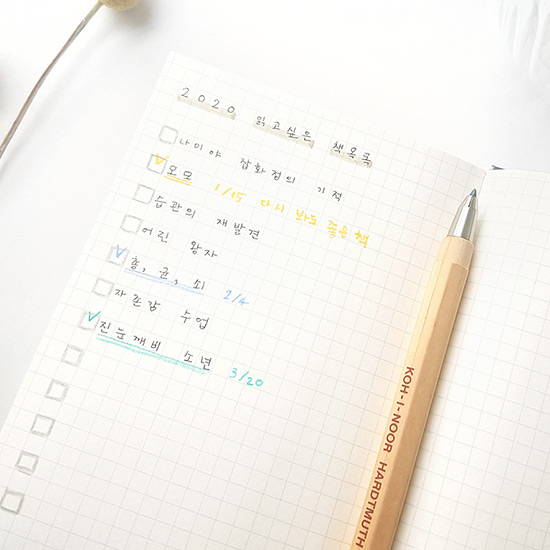 2020 읽고싶은 책목록
나미야 잡화점의 기적
모모 1/15 다시 봐도 좋은 책
습관의 재발견
어린 왕자
총, 균, 쇠 2/4
자존감 수업
진눈깨비 소년 3/20
KOH-I-NOOR HARDTMUTH